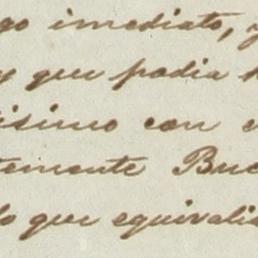 go imediato, y
y que podia h
isimo con e
temente Bue
lo que equivalis